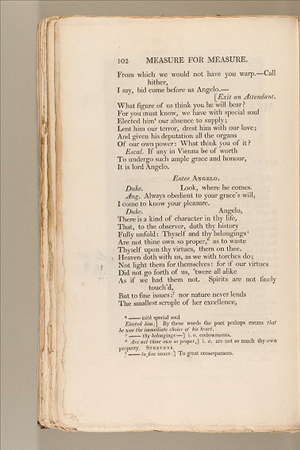 102 MEASURE FOR MEASURE.
From which we would not have you warp.—Call
hither,
I say, bid come before us Angelo.—
[Exit an Attendant.
What figure of us think you he will bear?
For you must know, we have with special soul
Elected him⁴ our absence to supply;
Lent him our terror, drest him with our love;
And given his deputation all the organs
Of our own power: What think you of it?
Escal. If any in Vienna be of worth
To undergo such ample grace and honour,
It is lord Angelo.
Enter ANGELO.
Duke. Look, where he comes.
Ang. Always obedient to your grace's will,
I come to know your pleasure.
Duke. Angelo,
There is a kind of character in thy life,
That, to the observer, doth thy history
Fully unfold: Thyself and thy belongings⁵
Are not thine own so proper,⁶ as to waste
Thyself upon thy virtues, them on thee.
Heaven doth with us, as we with torches do;
Not light them for themselves: for if our virtues
Did not go forth of us, 'twere all alike
As if we had them not. Spirits are not finely
touch'd,
But to fine issues:⁷ nor nature never lends
The smallest scruple of her excellence,
⁴ —— with special soul
Elected him:] By these words the poet perhaps means that
he was the immediate choice of his heart.
⁵ —— thy belongings—] i. e. endowments.
⁶ Are not thine own so proper,] i. e. are not so much thy own
property. STEEVENS.
⁷ —— to fine issues:] To great consequences.